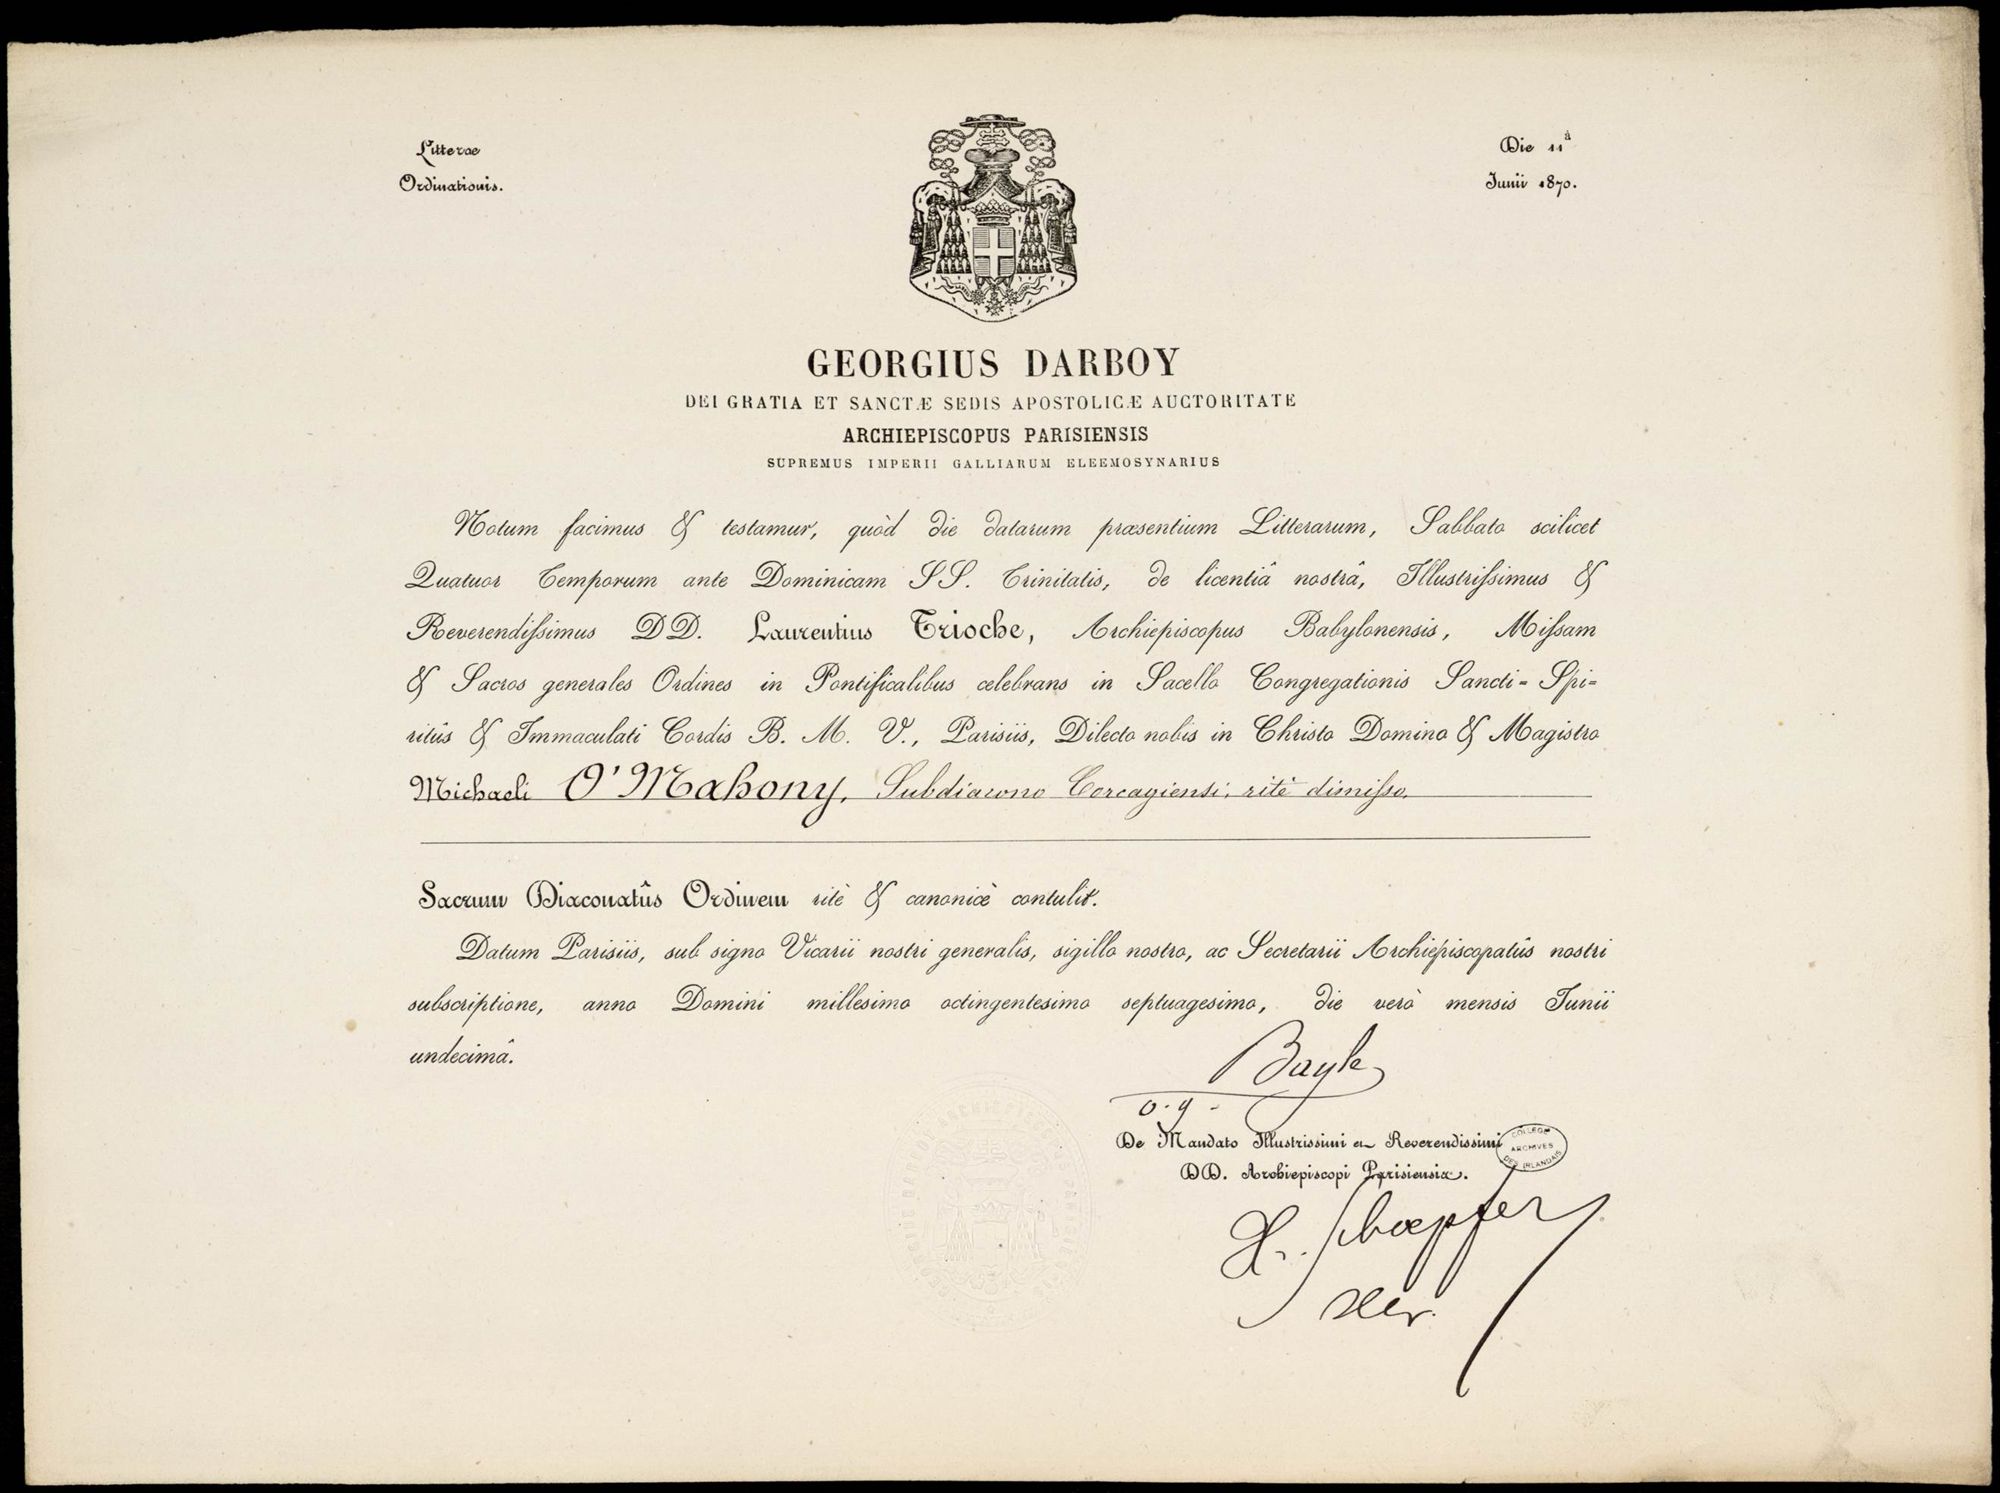 Litterae
Ordinationis.
Die 11ᵃ
Junii 1870.
GEORGIUS DARBOY
DEI GRATIA ET SANCTÆ SEDIS APOSTOLICÆ AUCTORITATE
ARCHIEPISCOPUS PARISIENSIS
SUPREMUS IMPERII GALLIARUM ELEEMOSYNARIUS
Notum facimus & testamur, quòd die datarum præsentium Litterarum, Sabbato scilicet
Quatuor Temporum ante Dominicam SS. Trinitatis, de licentiâ nostrâ, Illustrissimus &
Reverendissimus DD. Laurentius Trioche, Archiepiscopus Babylonensis, Missam
& Sacros generales Ordines in Pontificalibus celebrans in Sacello Congregationis Sancti-Spi-
ritûs & Immaculati Cordis B. M. V., Parisiis, Dilecto nobis in Christo Domino & Magistro
Michaeli O'Mahony, Subdiacono Corcagiensi, ritè dimisso,
Sacrum Diaconatûs Ordinem ritè & canonicè contulit.
Datum Parisiis, sub signo Vicarii nostri generalis, sigillo nostro, ac Secretarii Archiepiscopatûs nostri
subscriptione, anno Domini millesimo octingentesimo septuagesimo, die verò mensis Junii
undecimâ.
Bayle
v. g.
De Mandato Illustrissimi et Reverendissimi
DD. Archiepiscopi Parisiensis.
COLLEGE
ARCHIVES
DES IRLANDAIS
Schoepfer